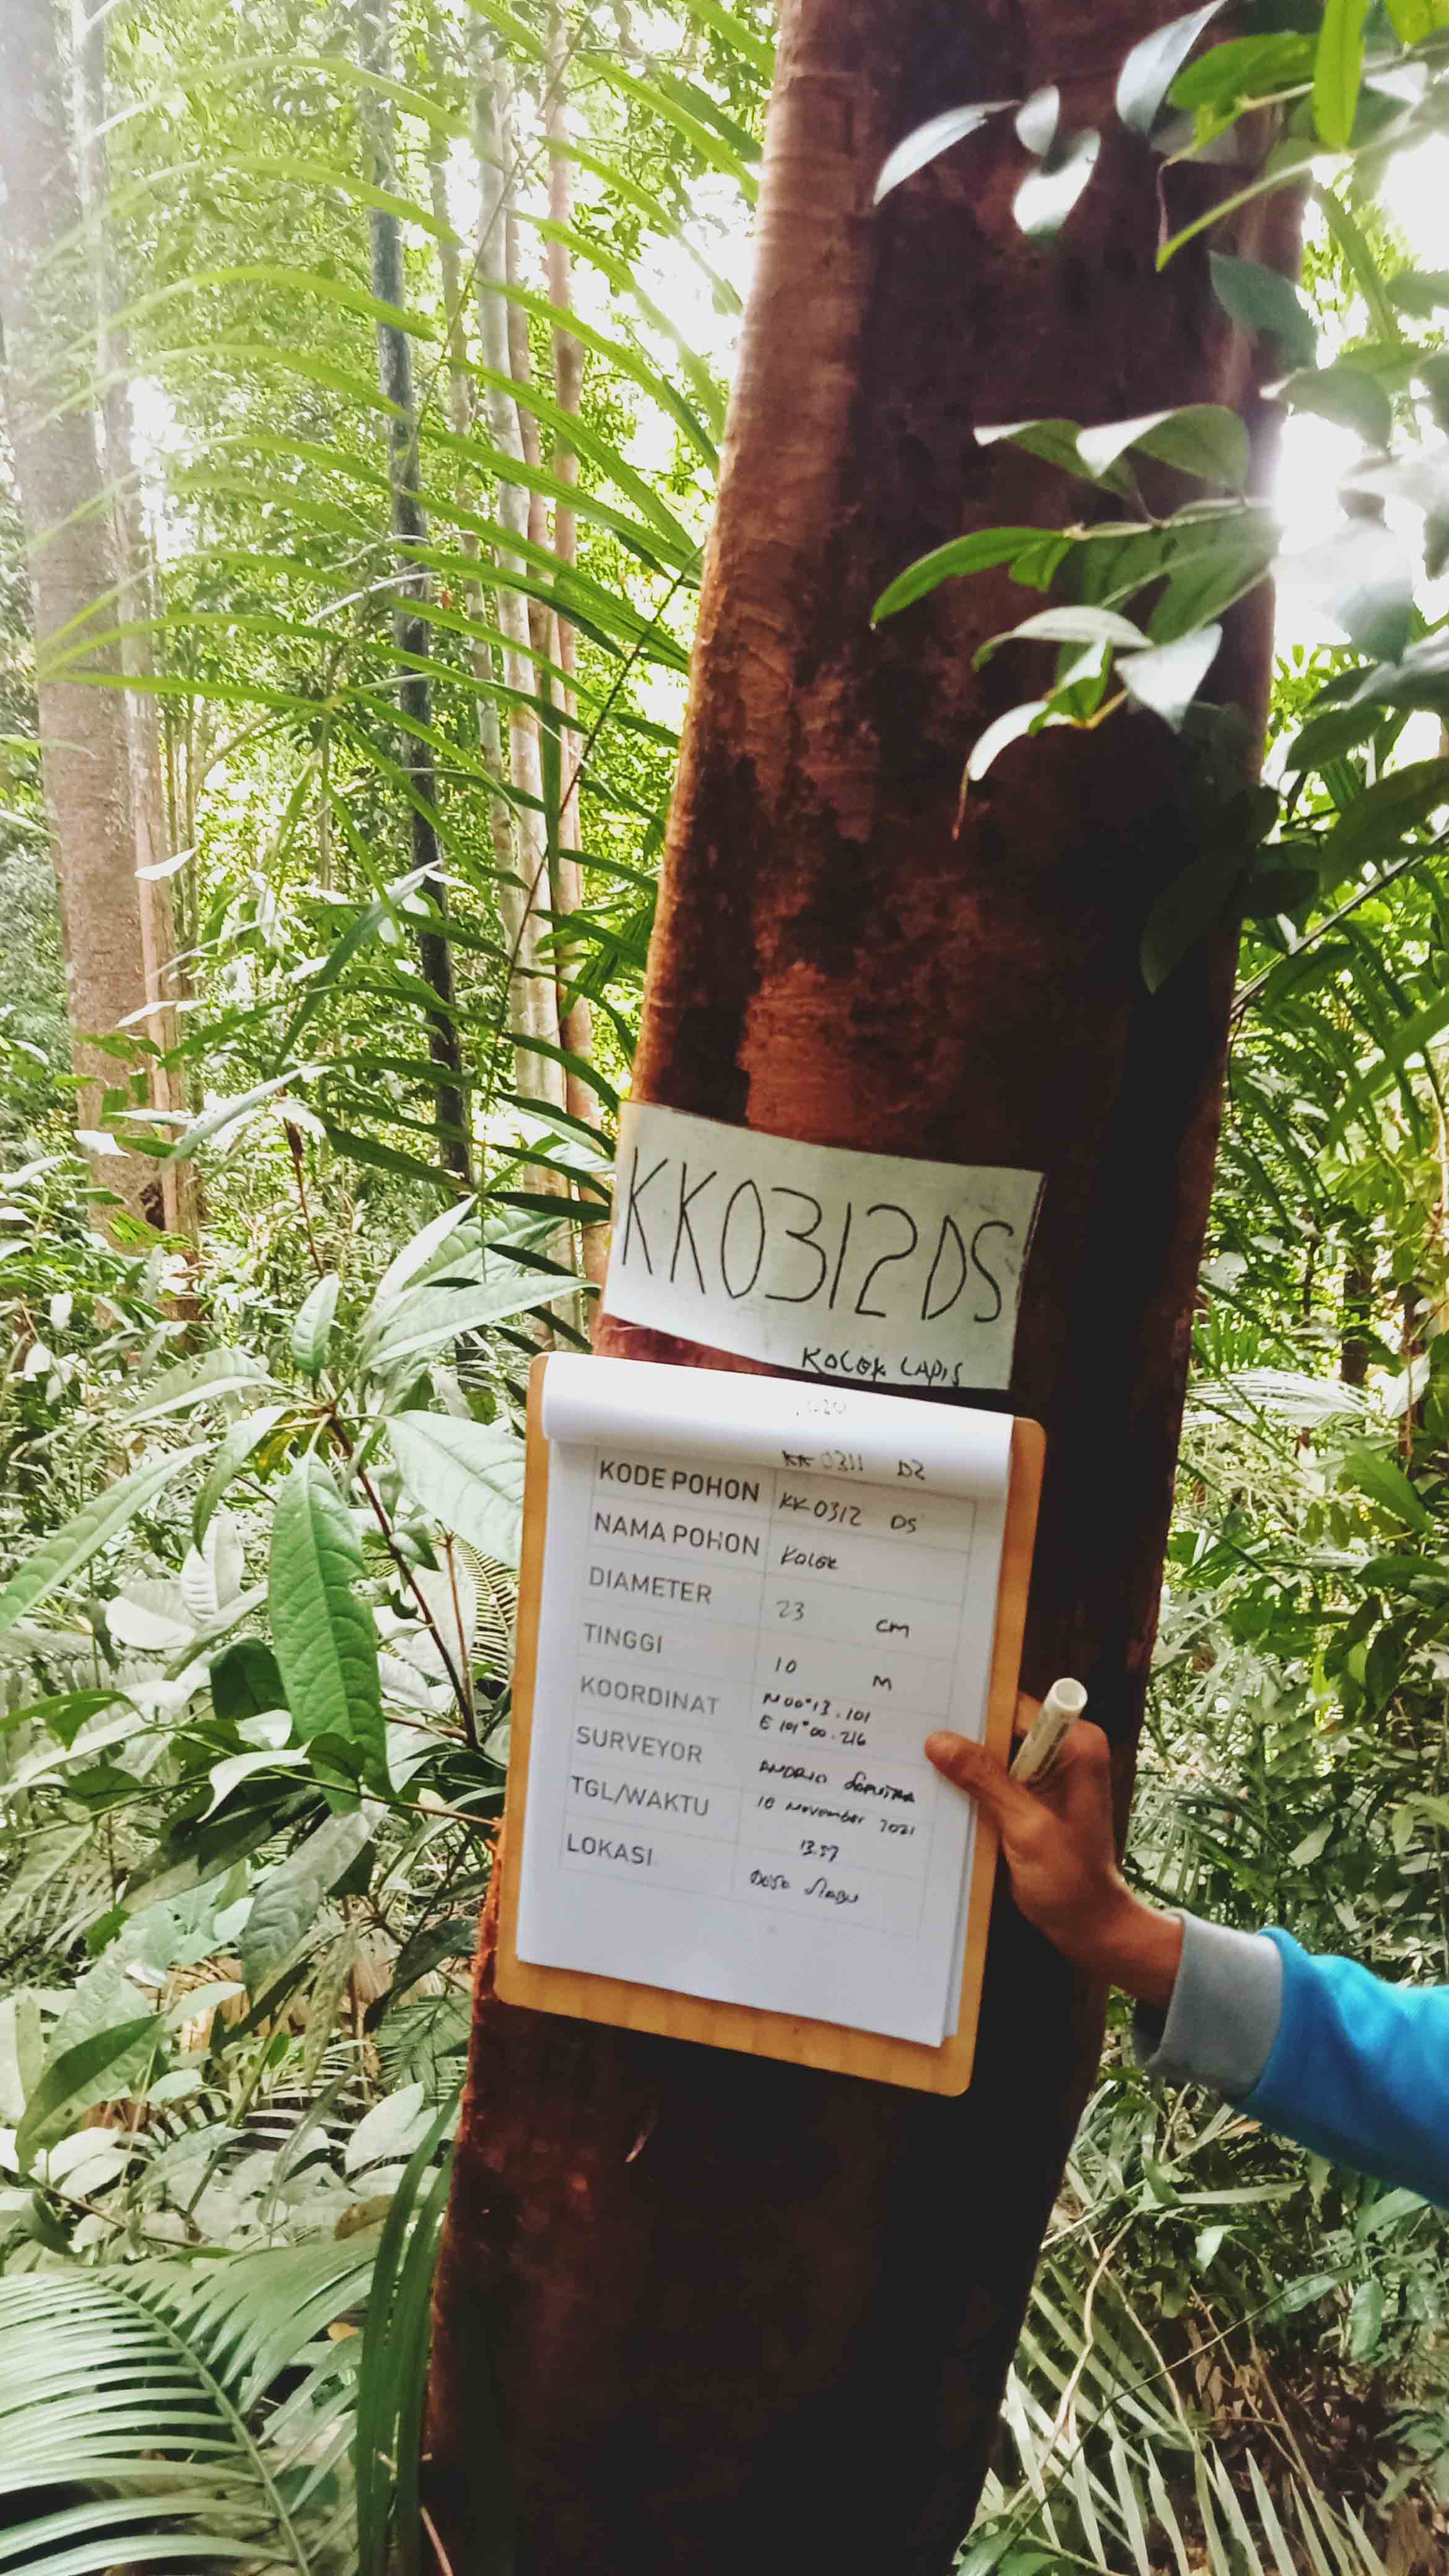 KK0312DS
KOLEK LAPIS
KK 0311 DS
KODE POHON KK 0312 DS
NAMA POHON KOLEK
DIAMETER 23 cm
TINGGI 10 M
KOORDINAT N 00°13.101
E 101°00.216
SURVEYOR ANDRIO SAPUTRA
TGL/WAKTU 10 November 2021
13.57
LOKASI